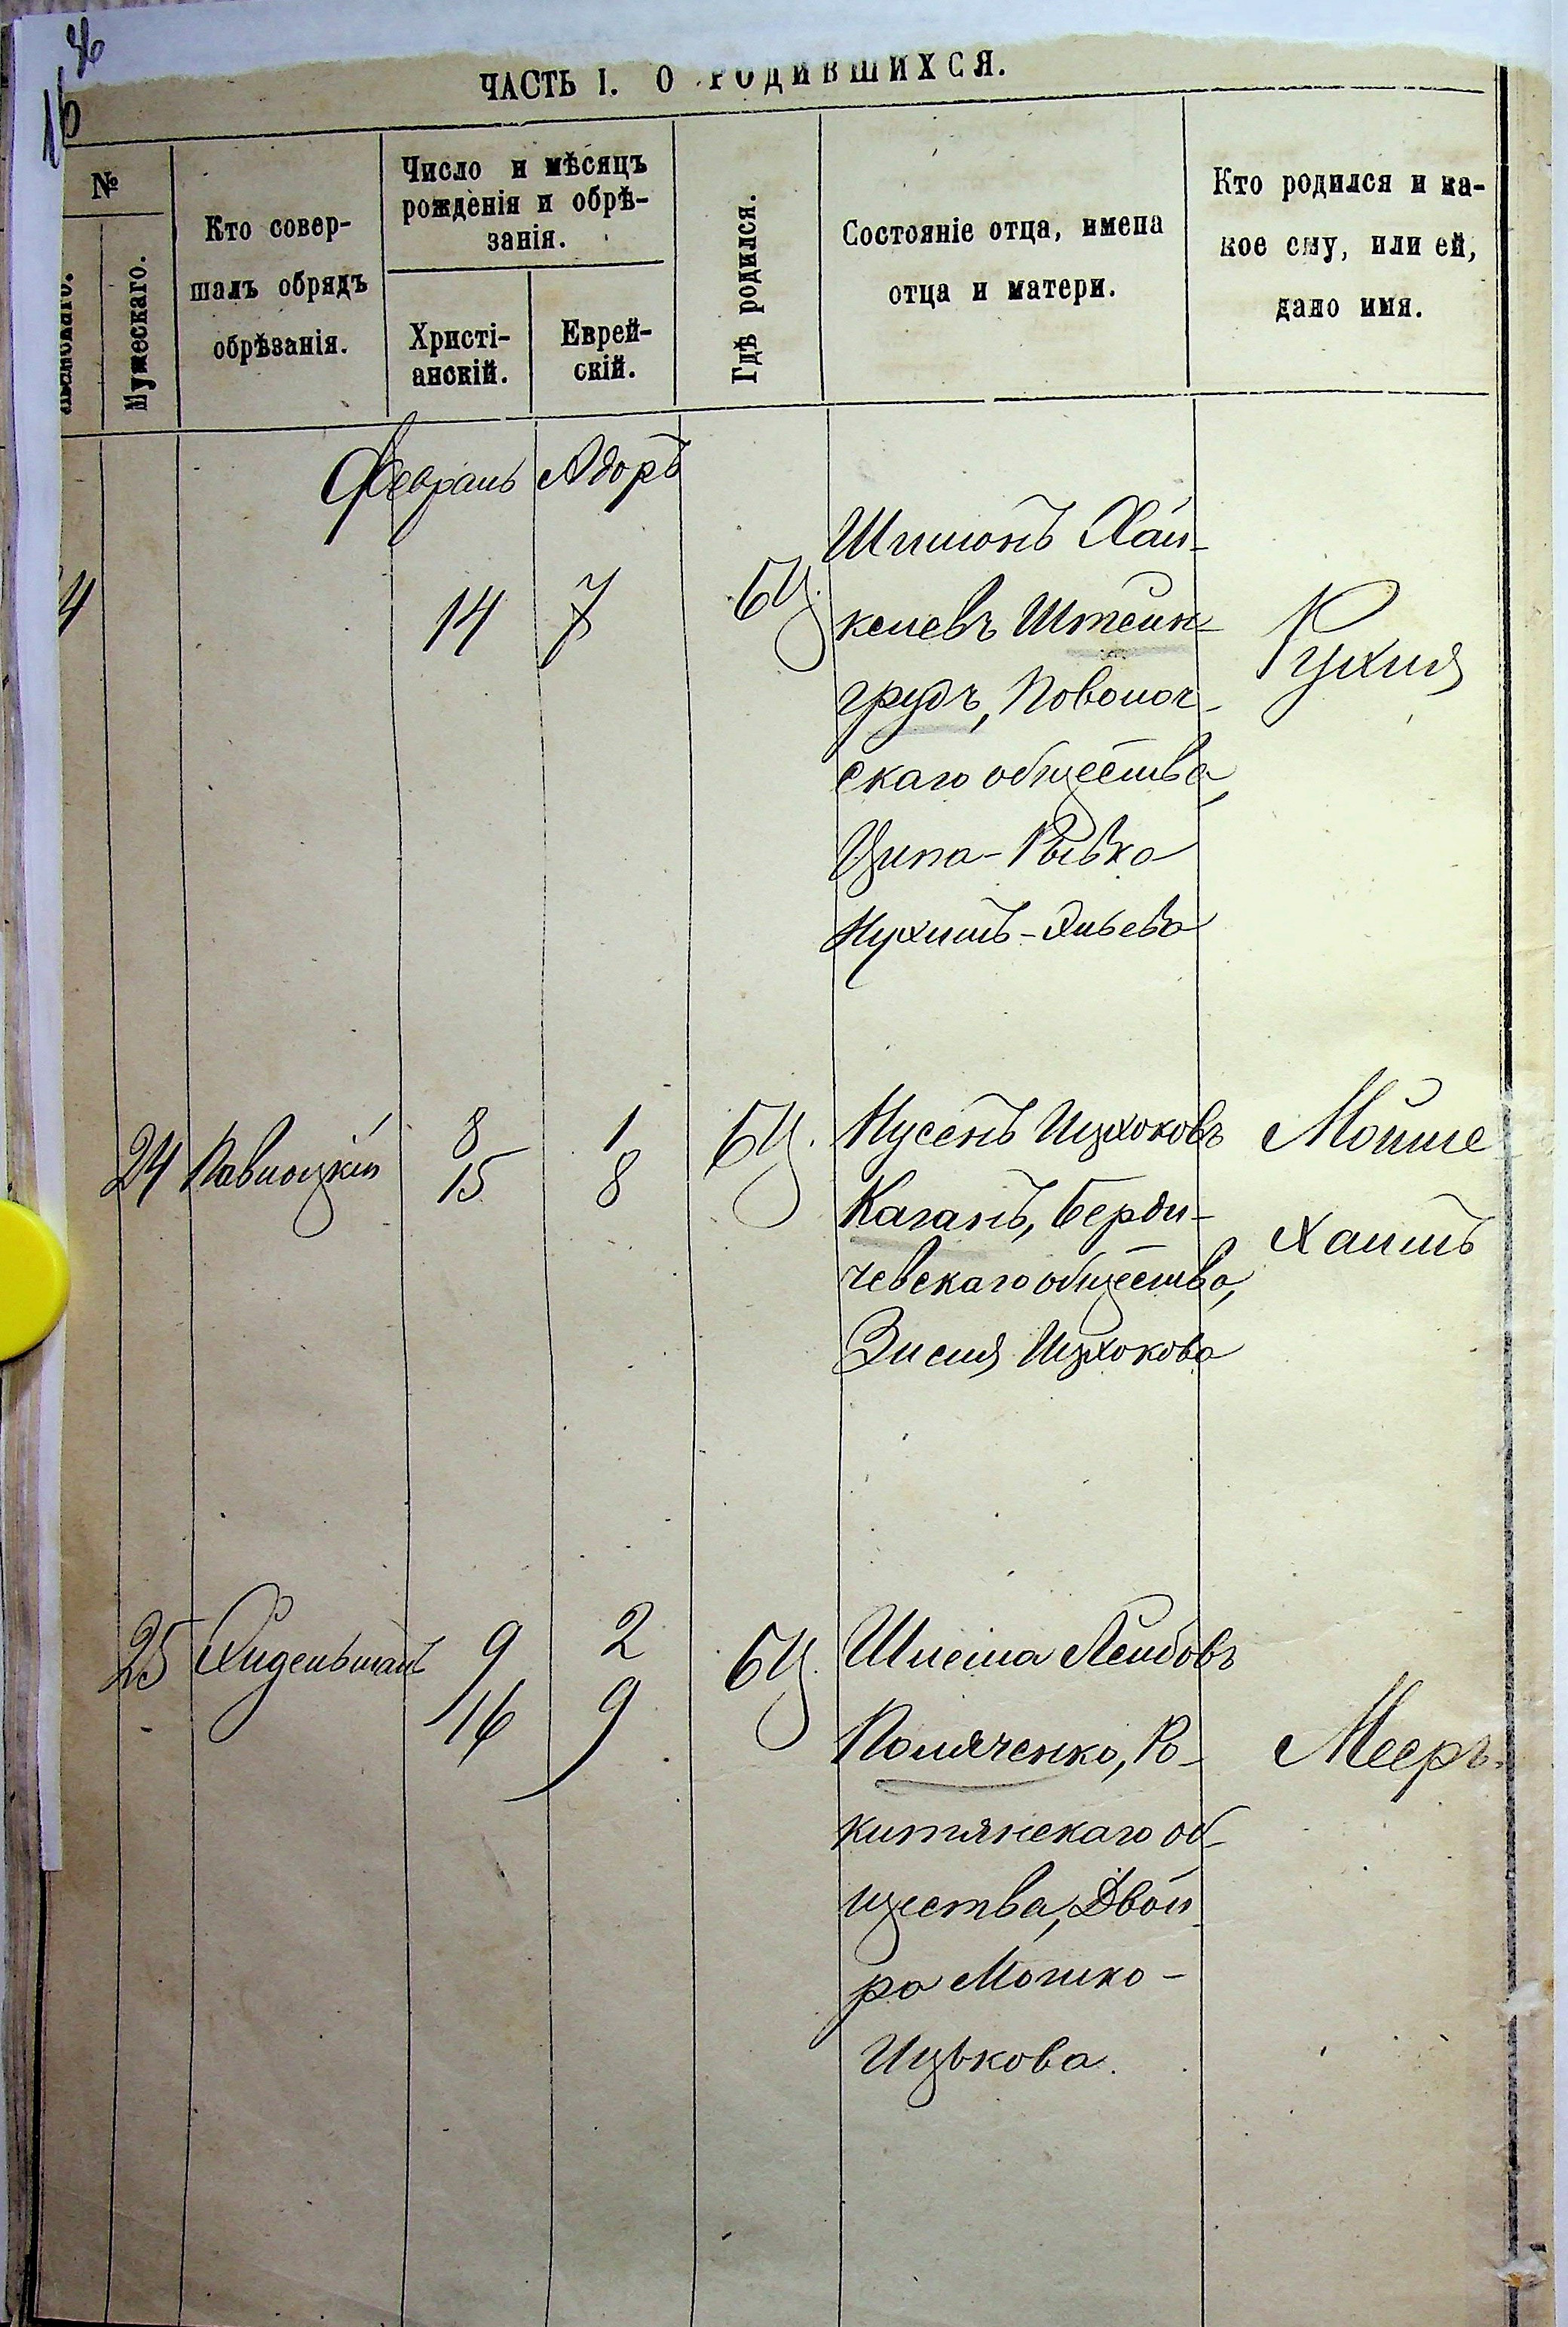 16
ЧАСТЬ I. О РОДИВШИХСЯ.
№
Мужескаго.
Кто совер-
шалъ обрядъ
обрѣзанія.
Число и мѣсяцъ
рожденія и обрѣ-
занія.
Христі-
анскій.
Еврей-
скій.
Гдѣ родился.
Состояніе отца, имена
отца и матери.
Кто родился и ка-
кое ему, или ей,
дано имя.
Февраль Адоръ
4 14 7 БЦ.
Шимонъ Хай-
келевъ Штейн-
грудъ,
скаго общества,
Ципа-Рывка
Нухимъ-Эльева
Рухля
24 Павлоцкій 8 1 БЦ.
15 8
Нусенъ Ицхоковъ
Каганъ, Берди-
чевскаго общества,
Зисля Ицхокова
Мойше
Хаимъ
25 9 2 БЦ.
16 9
Шлёма Лейбовъ
Поляченко, Ро-
китянскаго об-
щества, Двой
ра Мошко-
Ицькова.
Мееръ.